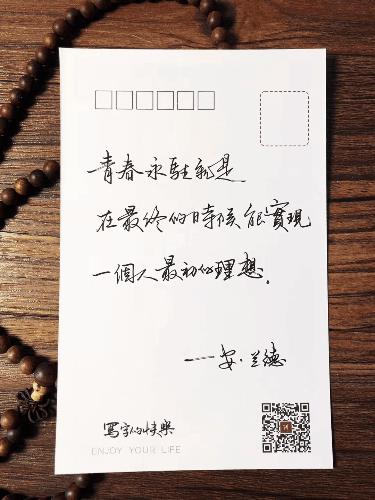 青春永駐就是
在最终的時候能實現
一個人最初的理想。
——安·兰德
寫字的快樂
ENJOY YOUR LIFE